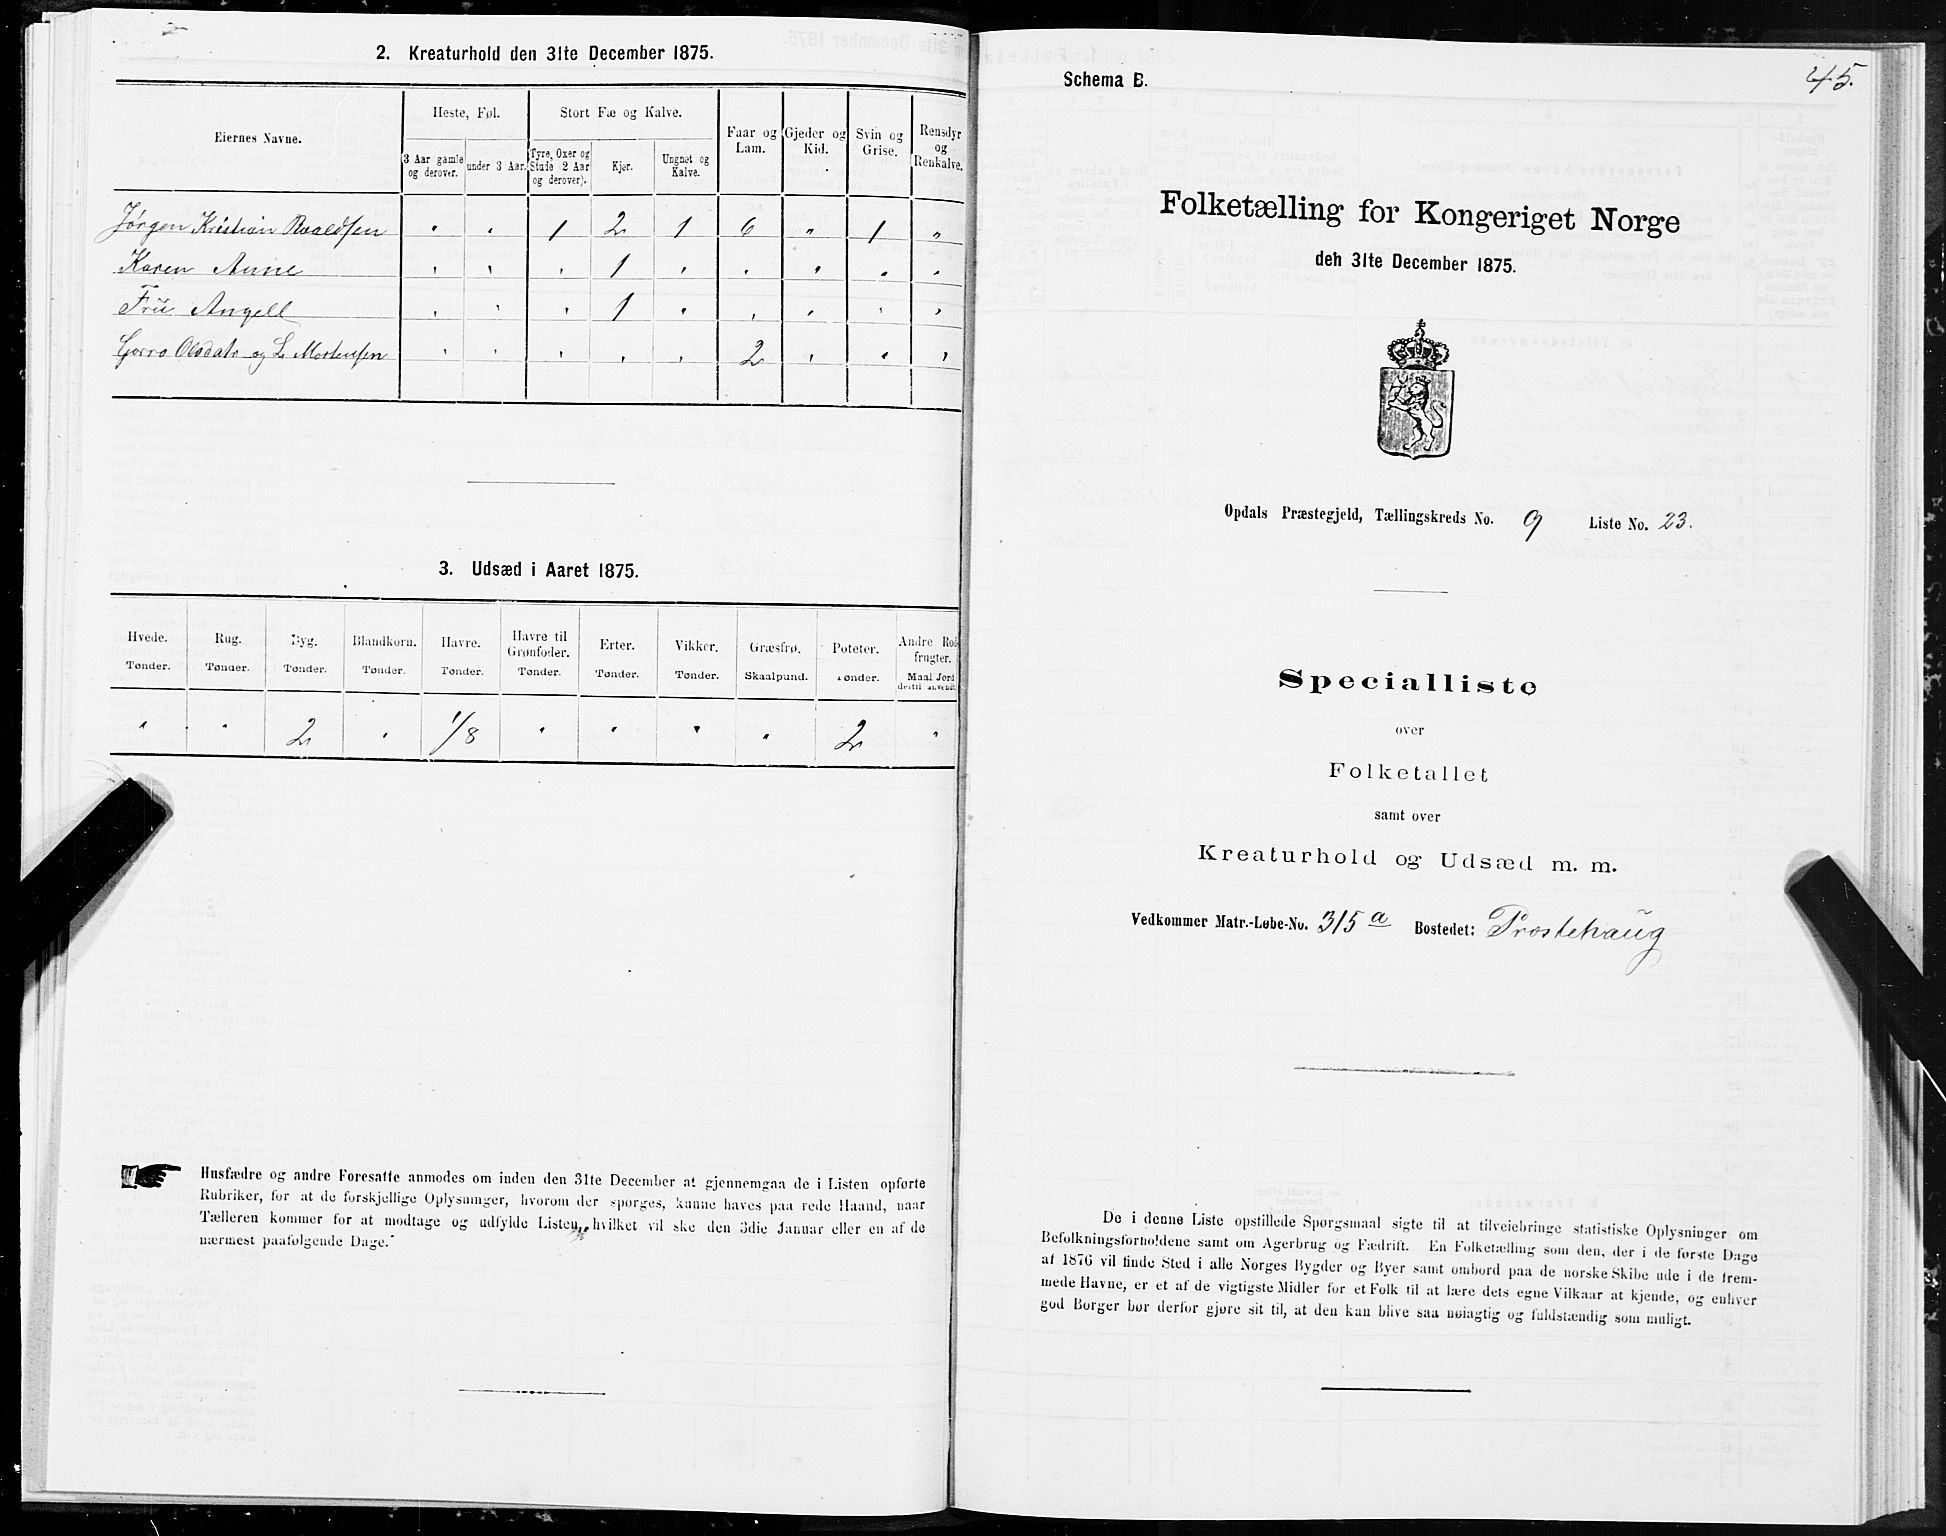 2. Kreaturhold den 31te December 1875.
Eiernes Navne.
Heste, Føl.
Stort Fæ og Kalve.
Faar og Lam.
Gjeder og Kid.
Svin og Grise.
Rensdyr og Renkalve.
3 Aar gamle og derover.
under 3 Aar.
Tyre, Oxer og Stude 2 Aar og derover).
Kjør.
Ungnet og Kalve.
Jørgen Kristian Roaldsen " " 1 2 1 6 " 1 "
Karen Anne " " " 1 " " " " "
Fru Angell " " " 1 " " " " "
Olsdatr og L Mortensen " " " " " 2 " " "
3. Udsæd i Aaret 1875.
Hvede. Tønder.
Rug. Tønder.
Byg. Tønder.
Blandkorn. Tønder.
Havre. Tønder.
Havre til Grønfoder. Tønder.
Erter. Tønder.
Vikker. Tønder.
Græsfrø. Skaalpund.
Poteter. Tønder.
Andre Rodfrugter. Maal Jord dertil anvendt.
" " 2 " 1/8 " " " " 2 "
Husfædre og andre Foresatte anmodes om inden den 31te December at gjennemgaa de i Listen opførte
Rubriker, for at de forskjellige Oplysninger, hvorom der spørges, kunne haves paa rede Haand, naar
Tælleren kommer for at modtage og udfylde Listen, hvilket vil ske den 3die Januar eller en af de
nærmest paafølgende Dage.
45.
Schema B.
Folketælling for Kongeriget Norge
deh 31te December 1875.
Opdals Præstegjeld, Tællingskreds No. 9 Liste No. 23.
Specialliste
over
Folketallet
samt over
Kreaturhold og Udsæd m. m.
Vedkommer Matr.-Løbe-No. 315 a Bostedet: Prostehaug
De i denne Liste opstillede Spørgsmaal sigte til at tilveiebringe statistiske Oplysninger om
Befolkningsforholdene samt om Agerbrug og Fædrift. En Folketælling som den, der i de første Dage
af 1876 vil finde Sted i alle Norges Bygder og Byer samt ombord paa de norske Skibe ude i de frem-
mede Havne, er et af de vigtigste Midler for et Folk til at lære dets egne Vilkaar at kjende, og enhver
god Borger bør derfor gjøre sit til, at den kan blive saa nøiagtig og fuldstændig som muligt.